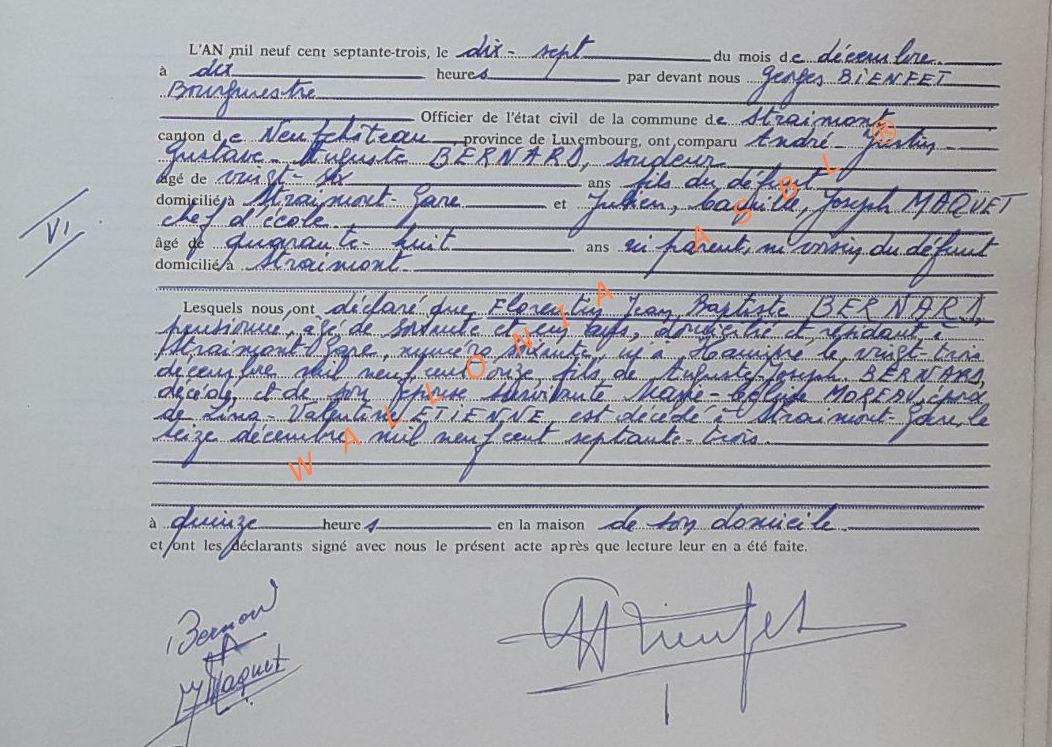 L'AN mil neuf cent septante-trois, le dix-sept du mois de décembre
à dix heures par devant nous Georges BIENFET
Bourgmestre
Officier de l'état civil de la commune de Straimont
canton de Neufchâteau province de Luxembourg, ont comparu André-Justin-
Gustave-Auguste BERNARD, soudeur
âgé de vingt-six ans fils du défunt
domicilié à Straimont-Gare et Julien, Camille, Joseph MAQUET
chef d'école
VI
âgé de quarante-huit ans ni parent, ni voisin du défunt
domicilié à Straimont
Lesquels nous ont déclaré que Florentin Jean Baptiste BERNARD,
pensionné, âgé de soixante et un ans, domicilié et résidant à
Straimont-Gare, numéro soixante, né à Hamipré le vingt-trois
décembre mil neuf cent onze, fils de Auguste Joseph BERNARD,
décédé, et de son épouse survivante Marie- MOREAU, époux
de Lina-Valentine ETIENNE est décédé à Straimont-Gare, le
seize décembre mil neuf cent septante-trois.
à quinze heures en la maison de son domicile
et ont les déclarants signé avec nous le présent acte après que lecture leur en a été faite.
Bernard
A
J Maquet
Bienfet
WALLONIA ASBL ®